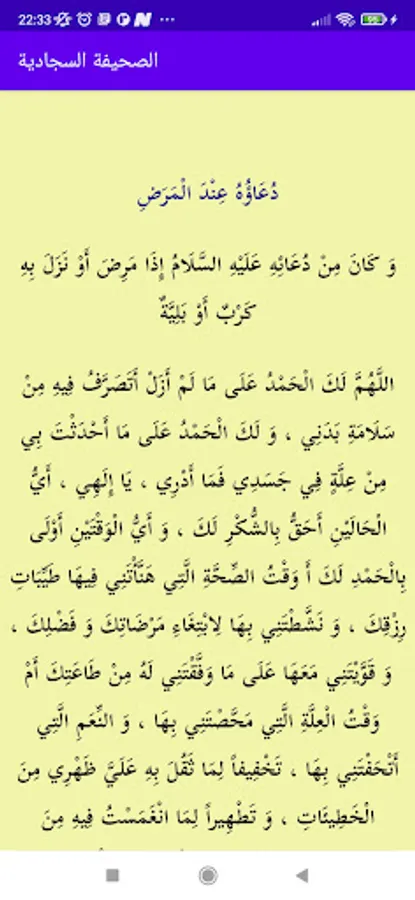 22:33
الصحيفة السجادية
دُعَاؤُهُ عِنْدَ الْمَرَضِ
وَ كَانَ مِنْ دُعَائِهِ عَلَيْهِ السَّلَامُ إِذَا مَرِضَ أَوْ نَزَلَ بِهِ
كَرْبٌ أَوْ بَلِيَّةٌ
اللَّهُمَّ لَكَ الْحَمْدُ عَلَى مَا لَمْ أَزَلْ أَتَصَرَّفُ فِيهِ مِنْ
سَلَامَةِ بَدَنِي ، وَ لَكَ الْحَمْدُ عَلَى مَا أَحْدَثْتَ بِي
مِنْ عِلَّةٍ فِي جَسَدِي فَمَا أَدْرِي ، يَا إِلَهِي ، أَيُّ
الْحَالَيْنِ أَحَقُّ بِالشُّكْرِ لَكَ ، وَ أَيُّ الْوَقْتَيْنِ أَوْلَى
بِالْحَمْدِ لَكَ أَ وَقْتُ الصِّحَّةِ الَّتِي هَنَّأْتَنِي فِيهَا طَيِّبَاتِ
رِزْقِكَ ، وَ نَشَّطْتَنِي بِهَا لِابْتِغَاءِ مَرْضَاتِكَ وَ فَضْلِكَ ،
وَ قَوَّيْتَنِي مَعَهَا عَلَى مَا وَفَّقْتَنِي لَهُ مِنْ طَاعَتِكَ أَمْ
وَقْتُ الْعِلَّةِ الَّتِي مَحَّصْتَنِي بِهَا ، وَ النِّعَمِ الَّتِي
أَتْحَفْتَنِي بِهَا ، تَخْفِيفاً لِمَا ثَقُلَ بِهِ عَلَيَّ ظَهْرِي مِنَ
الْخَطِيئَاتِ ، وَ تَطْهِيراً لِمَا انْغَمَسْتُ فِيهِ مِنَ